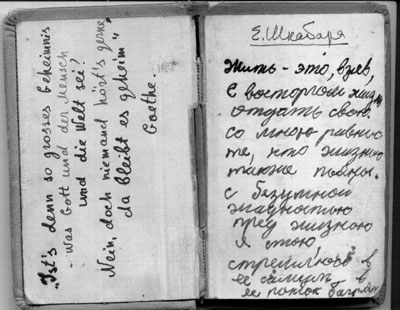 „Ist's denn so grosses Geheimnis
was Gott und der Mensch
und die Welt sei?
Nein, doch niemand hört's gerne
da bleibt es geheim"
Goethe.
Е. Шкабаря
Жить - это, взяв,
с восторгом
отдать свою.
со мною
те, кто жизнью
также полны.
с безумной
жадностью
пред жизнью
я стою,
стремлюсь в
ее самум в
ее поток